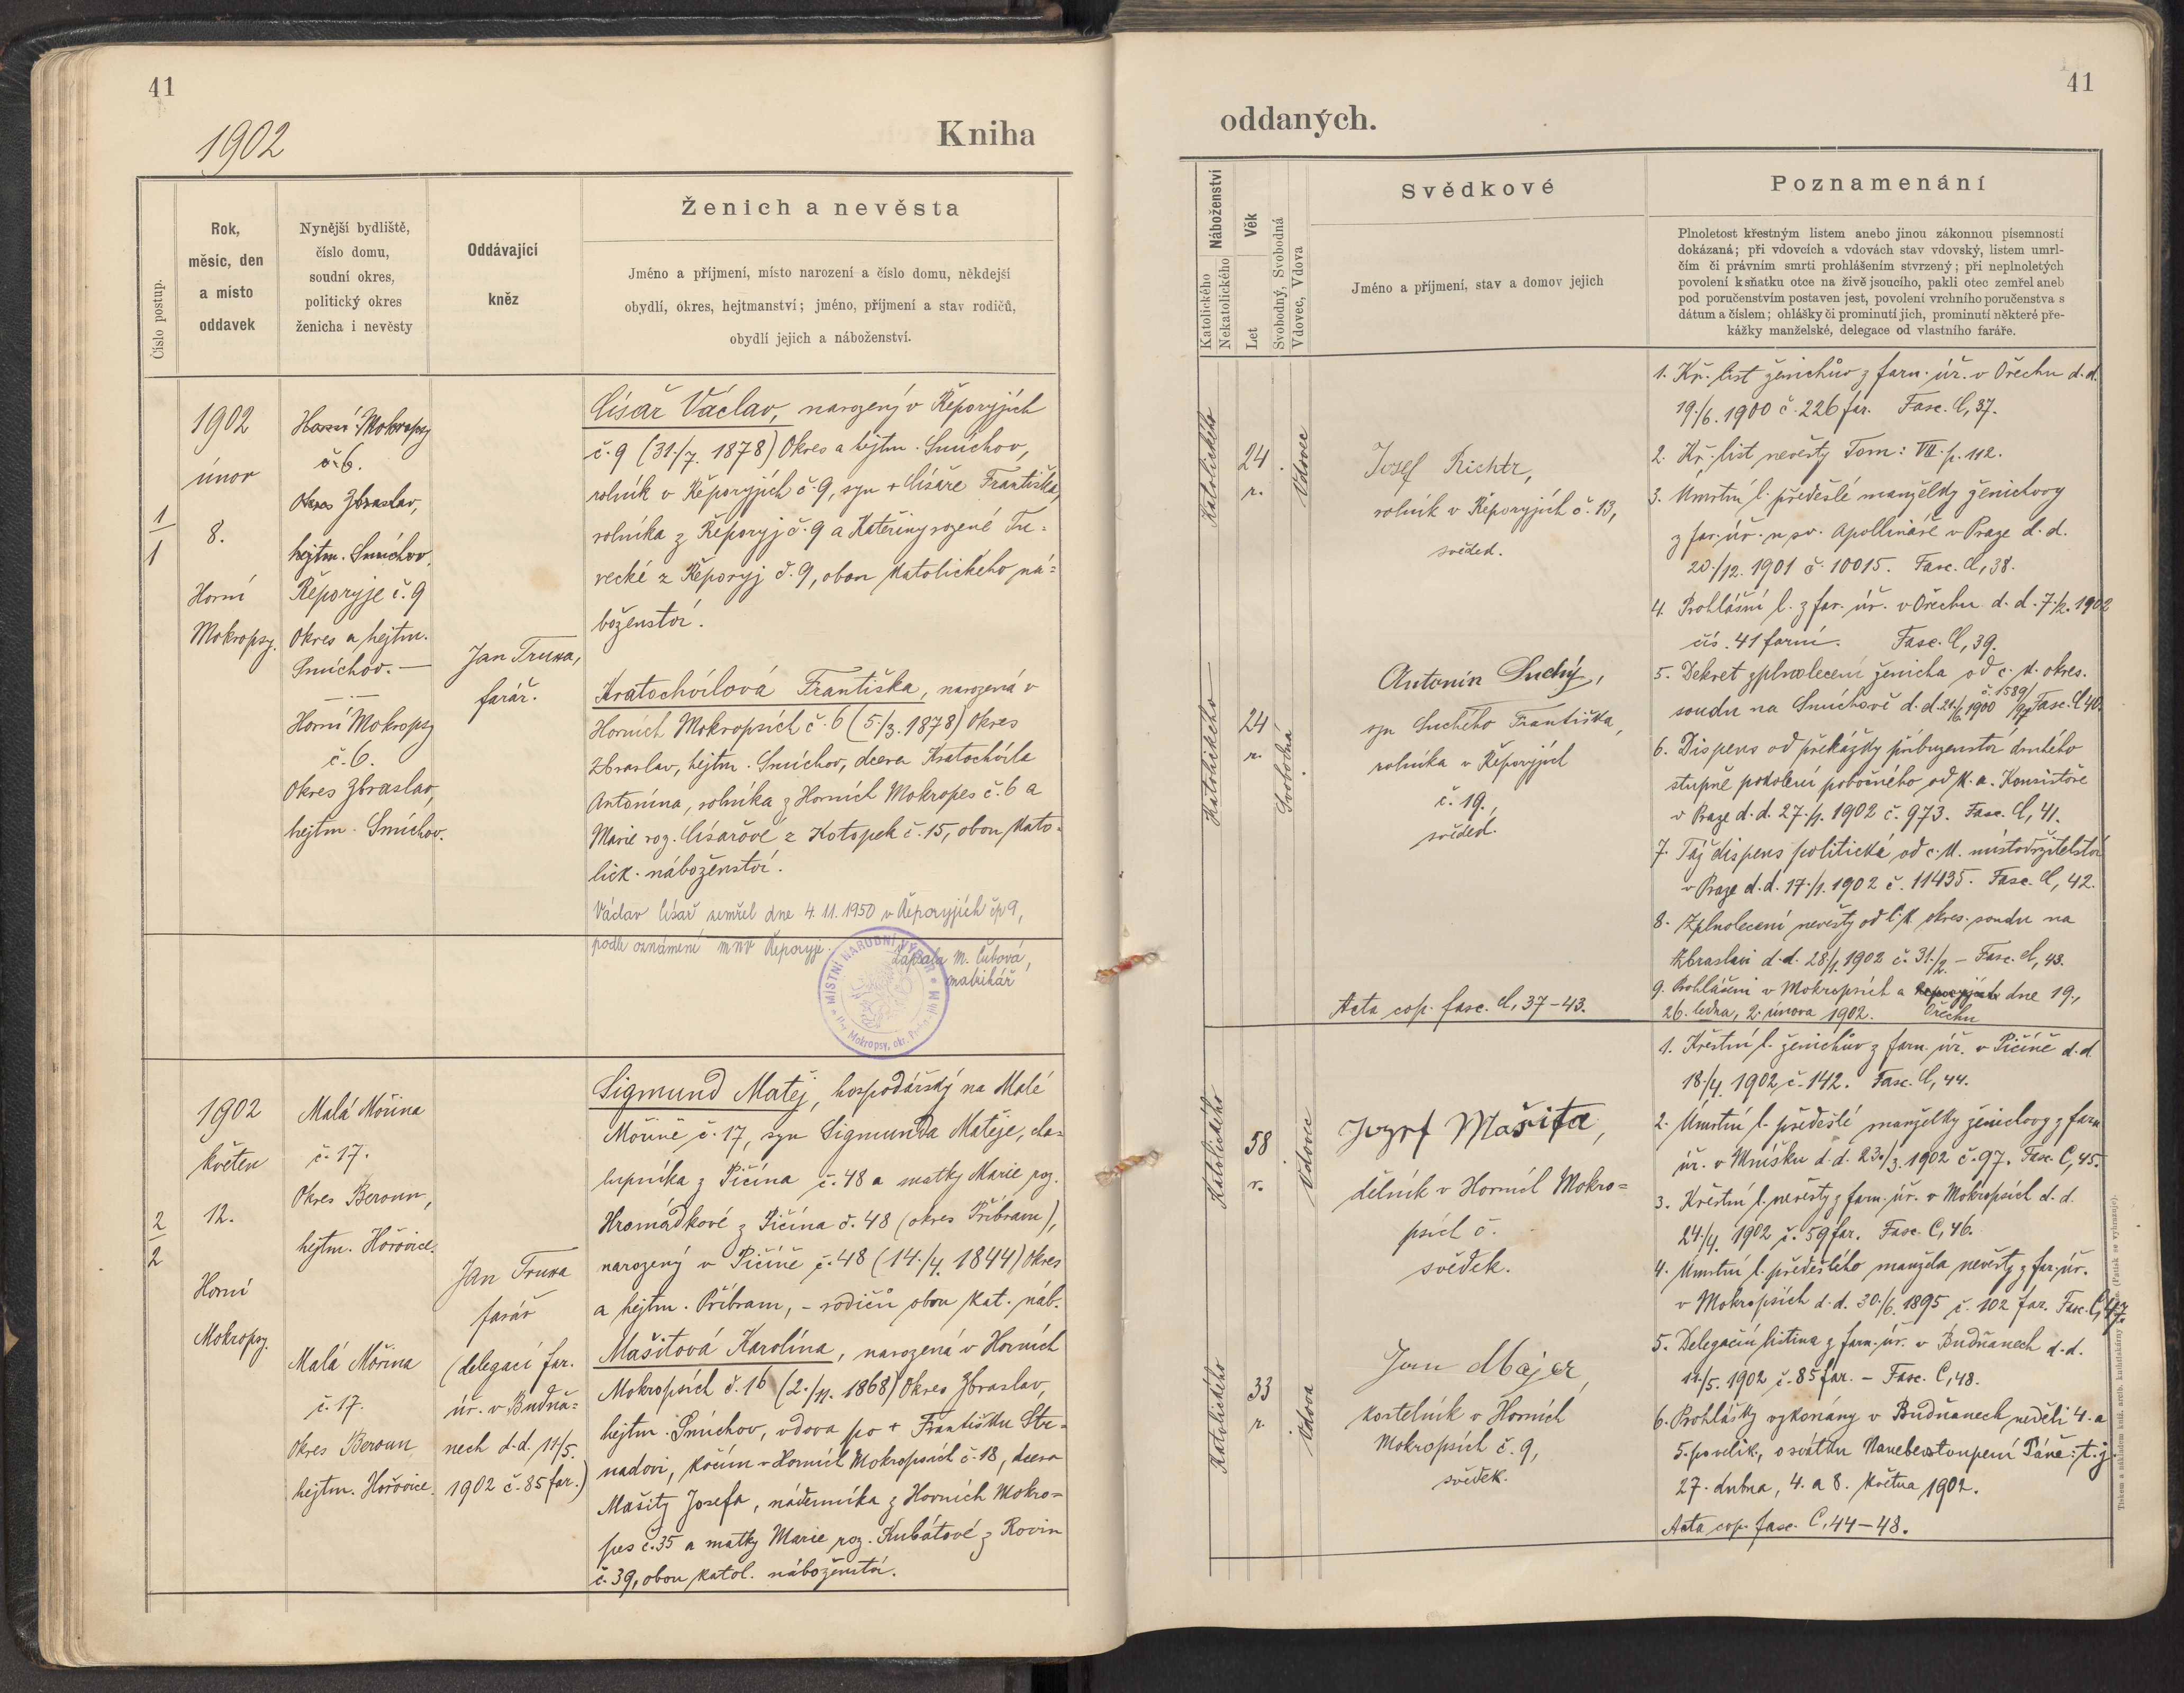 41
1902
Kniha
Číslo postup.
Rok,
měsíc, den
a místo
oddavek
Nynější bydliště,
číslo domu,
soudní okres,
politický okres
ženicha i nevěsty
Oddávající
kněz
Ženich a nevěsta
Jméno a příjmení, místo narození a číslo domu, někdejší
obydlí, okres, hejtmanství; jméno, příjmení a stav rodičů,
obydlí jejich a náboženství.
1
1
1902
únor
8.
Horní
Mokropsy.
Horní Mokropsy
č. 6.
Okres Zbraslav,
hejtm. Smíchov.
Řeporyje č. 9
Okres a hejtm.
Smíchov. —
Horní Mokropsy
č. 6.
Okres Zbraslav,
hejtm. Smíchov.
Jan Truxa,
farář.
Císař Václav, narozený v Řeporyjích
č. 9 (31./7. 1878) Okres a hejtm. Smíchov,
rolník v Řeporyjích č. 9, syn + Císaře Františka,
rolníka z Řeporyj č. 9 a Kateřiny rozené Tu-
recké z Řeporyj č. 9, obou katolického ná-
boženství.
Kratochvílová Františka, narozená v
Horních Mokropsích č. 6 (5./3. 1878) Okres
Zbraslav, hejtm. Smíchov, dcera Kratochvíla
Antonína, rolníka z Horních Mokropes č. 6 a
Marie roz. Císařové z Kotopek č. 15, obou kato-
lick. náboženství.
Václav Císař zemřel dne 4. 11. 1950 v Řeporyjích čp 9,
podle oznámení MNV Řeporyje.
Zapsala M. Čubová,
matrikář
MÍSTNÍ NÁRODNÍ VÝBOR
Mokropsy, okr. Praha jih
2
2
1902
květen
12.
Horní
Mokropsy.
Malá Mořina
č. 17.
Okres Beroun,
hejtm. Hořovice.
Malá Mořina
č. 17.
Okres Beroun
hejtm. Hořovice.
Jan Truxa
farář
(delegací far.
úř. v Budňa-
nech d.d. 11/5.
1902 č. 85 far.)
Sigmund Matěj, hospodářský na Malé
Mořině č. 17, syn Sigmunda Matěje, cha-
lupníka z Pičína č. 48 a matky Marie roz.
Hromádkové z Pičína č. 48 (okres Příbram),
narozený v Pičíně č. 48 (14./4. 1844) Okres
a hejtm. Příbram, - rodičů obou kat. náb.
Mašitová Karolína, narozená v Horních
Mokropsích č. 16 (2./11. 1868) Okres Zbraslav,
hejtm. Smíchov, vdova po + Františku Str-
nadovi, kočím v Horních Mokropsích č. 18, dcera
Mašity Josefa, nádenníka z Horních Mokro-
pes č. 35 a matky Marie roz. Kubátové z Rovin
č. 39, obou katol. náboženství.
41
oddaných.
Náboženství
Katolického
Nekatolického
Věk
Let
Svobodný, Svobodná
Vdovec, Vdova
Svědkové
Jméno a příjmení, stav a domov jejich
Poznamenání
Plnoletost křestným listem anebo jinou zákonnou písemností
dokázaná; při vdovcích a vdovách stav vdovský, listem umrl-
čím či právním smrti prohlášením stvrzený; při neplnoletých
povolení k sňatku otce na živě jsoucího, pakli otec zemřel aneb
pod poručenstvím postaven jest, povolení vrchního poručenstva s
dátum a číslem; ohlášky či prominutí jich, prominutí některé pře-
kážky manželské, delegace od vlastního faráře.
Katolického
24
r.
Vdovec
Josef Richtr,
rolník v Řeporyjích č. 13,
svěděd.
Katolického
24
r.
Svobodná
Antonín Suchý,
syn Suchého Františka,
rolníka v Řeporyjích
č. 19.,
svěděd.
Acta cop. fasc. C, 37-43.
1. Kř. list ženichův z farn. úř. v Ořechu d. d.
19./6. 1900 č. 226 far. Fasc. C, 37.
2. Kř. list nevěsty Tom: VII. p. 112.
3. Úmrtní l. předešlé manželky ženichovy
z far. úř. u sv. Apollináře v Praze d. d.
20./12. 1901 č. 10015. Fasc. C, 38.
4. Prohlášní l. z far. úř. v Ořechu d. d. 7./2. 1902
čís. 41 farní. Fasc. C, 39.
5. Dekret zplnoletení ženicha od c. k. okres.
soudu na Smíchově d. d. 21./6. 1900 č. 1589/97 Fasc. C 40.
6. Dispens od překážky příbuzenství druhého
stupně pokolení pobočného od k. a. Konsistoře
v Praze d. d. 27./1. 1902 č. 973. Fasc. C, 41.
7. Táž dispens politická od c. k. místodržitelství
v Praze d. d. 17./1. 1902 č. 11435. Fasc. C, 42.
8. Zplnoletení nevěsty od c. k. okres. soudu na
Zbraslavi d. d. 28/1. 1902 č. 31./2. — Fasc. C, 43.
9. Prohlášení v Mokropsích a Řeporyjích dne 19.,
26. ledna, 2. února 1902. Ořechu
Katolického
58
r.
Vdovec
Jozef Mašita,
dělník v Horních Mokro-
psích č.
svědek.
Katolického
33
r.
Vdova
Jan Majer,
kostelník v Horních
Mokropsích č. 9,
svědek.
1. Křestní l. ženichův z farn. úř. v Pičíně d. d.
18./4. 1902 č. 142. Fasc. C, 44.
2. Úmrtní l. předešlé manželky ženichovy z farn.
úř. v Mníšku d. d. 23./3. 1902 č. 97. Fasc. C, 45.
3. Křestní l. nevěsty z farn. úř. v Mokropsích d. d.
24./4. 1902 č. 59 far. Fasc. C, 46.
4. Úmrtní l. předešlého manžela nevěsty z far. úř.
v Mokropsích d. d. 30./6. 1895 č. 102 far. Fasc. C, 47.
5. Delegační listina z farn. úř. v Budňanech d. d.
11./5. 1902 č. 85 far. — Fasc. C, 48.
6. Prohlášky vykonány v Budňanech neděli 4. a
5. po velik., o svátku Nanebevstoupení Páně: t. j.
27. dubna, 4. a 8. května 1902.
Acta cop. fasc. C, 44—48.